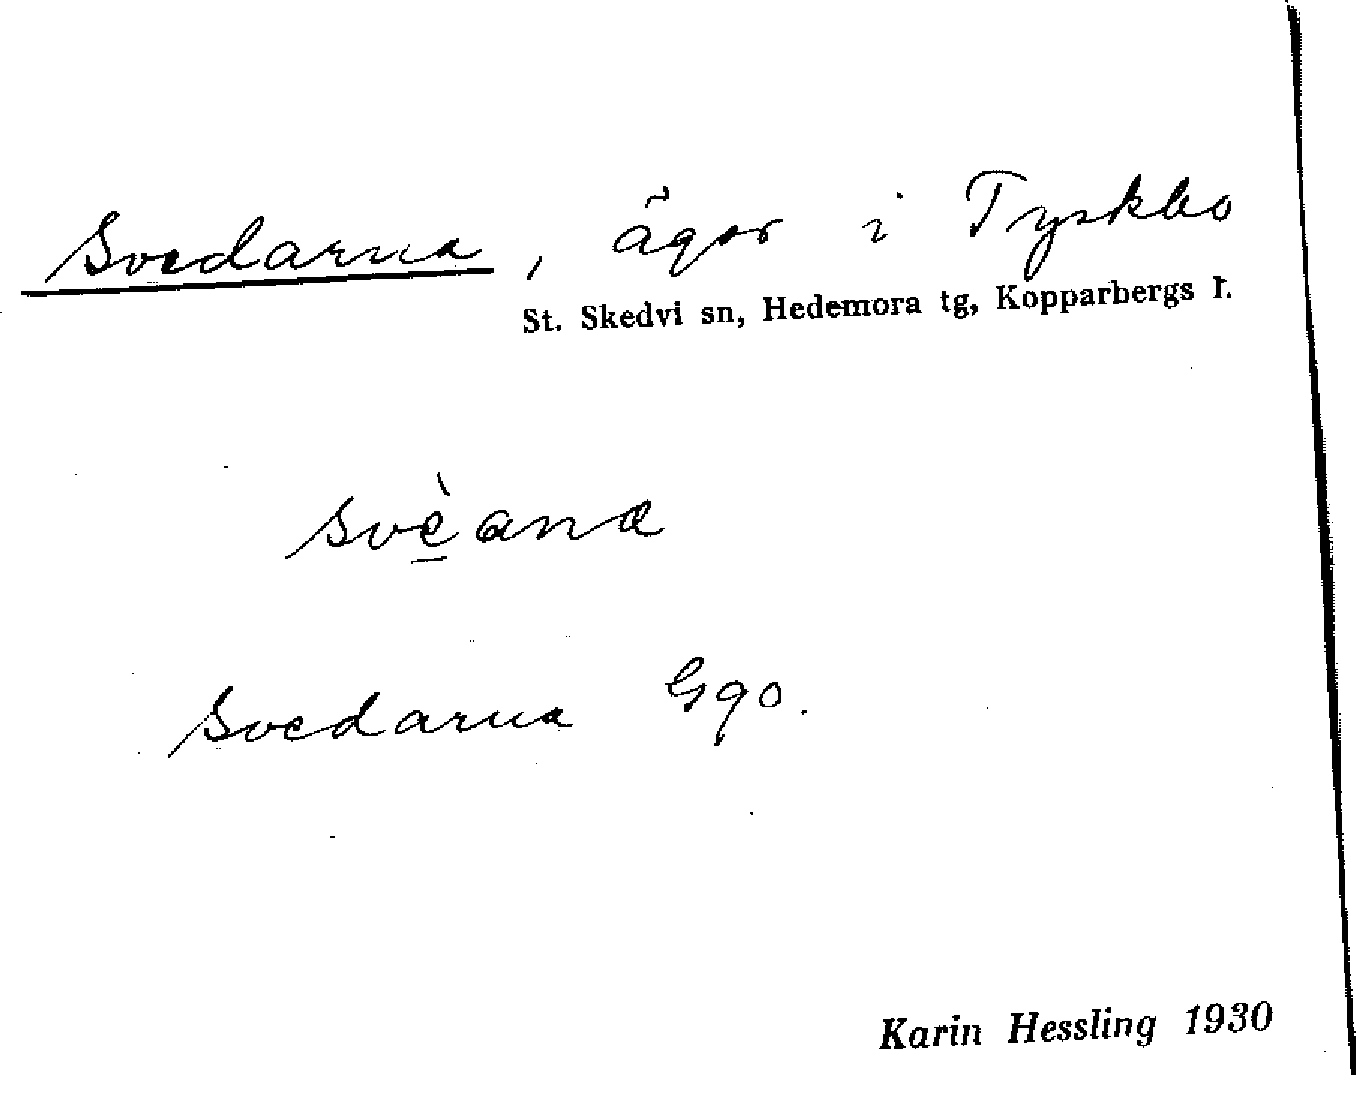 Svedarna, ägor i Tyskbo
St. Skedvi sn, Hedemora tg, Kopparbergs l.
svè̠ana
Svedarna Ggo.
Karin Hessling 1930